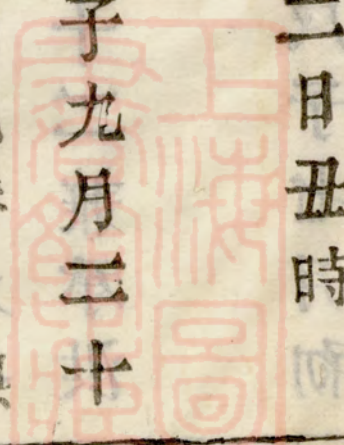 二日丑時
子九月二十
上海圖
書館藏